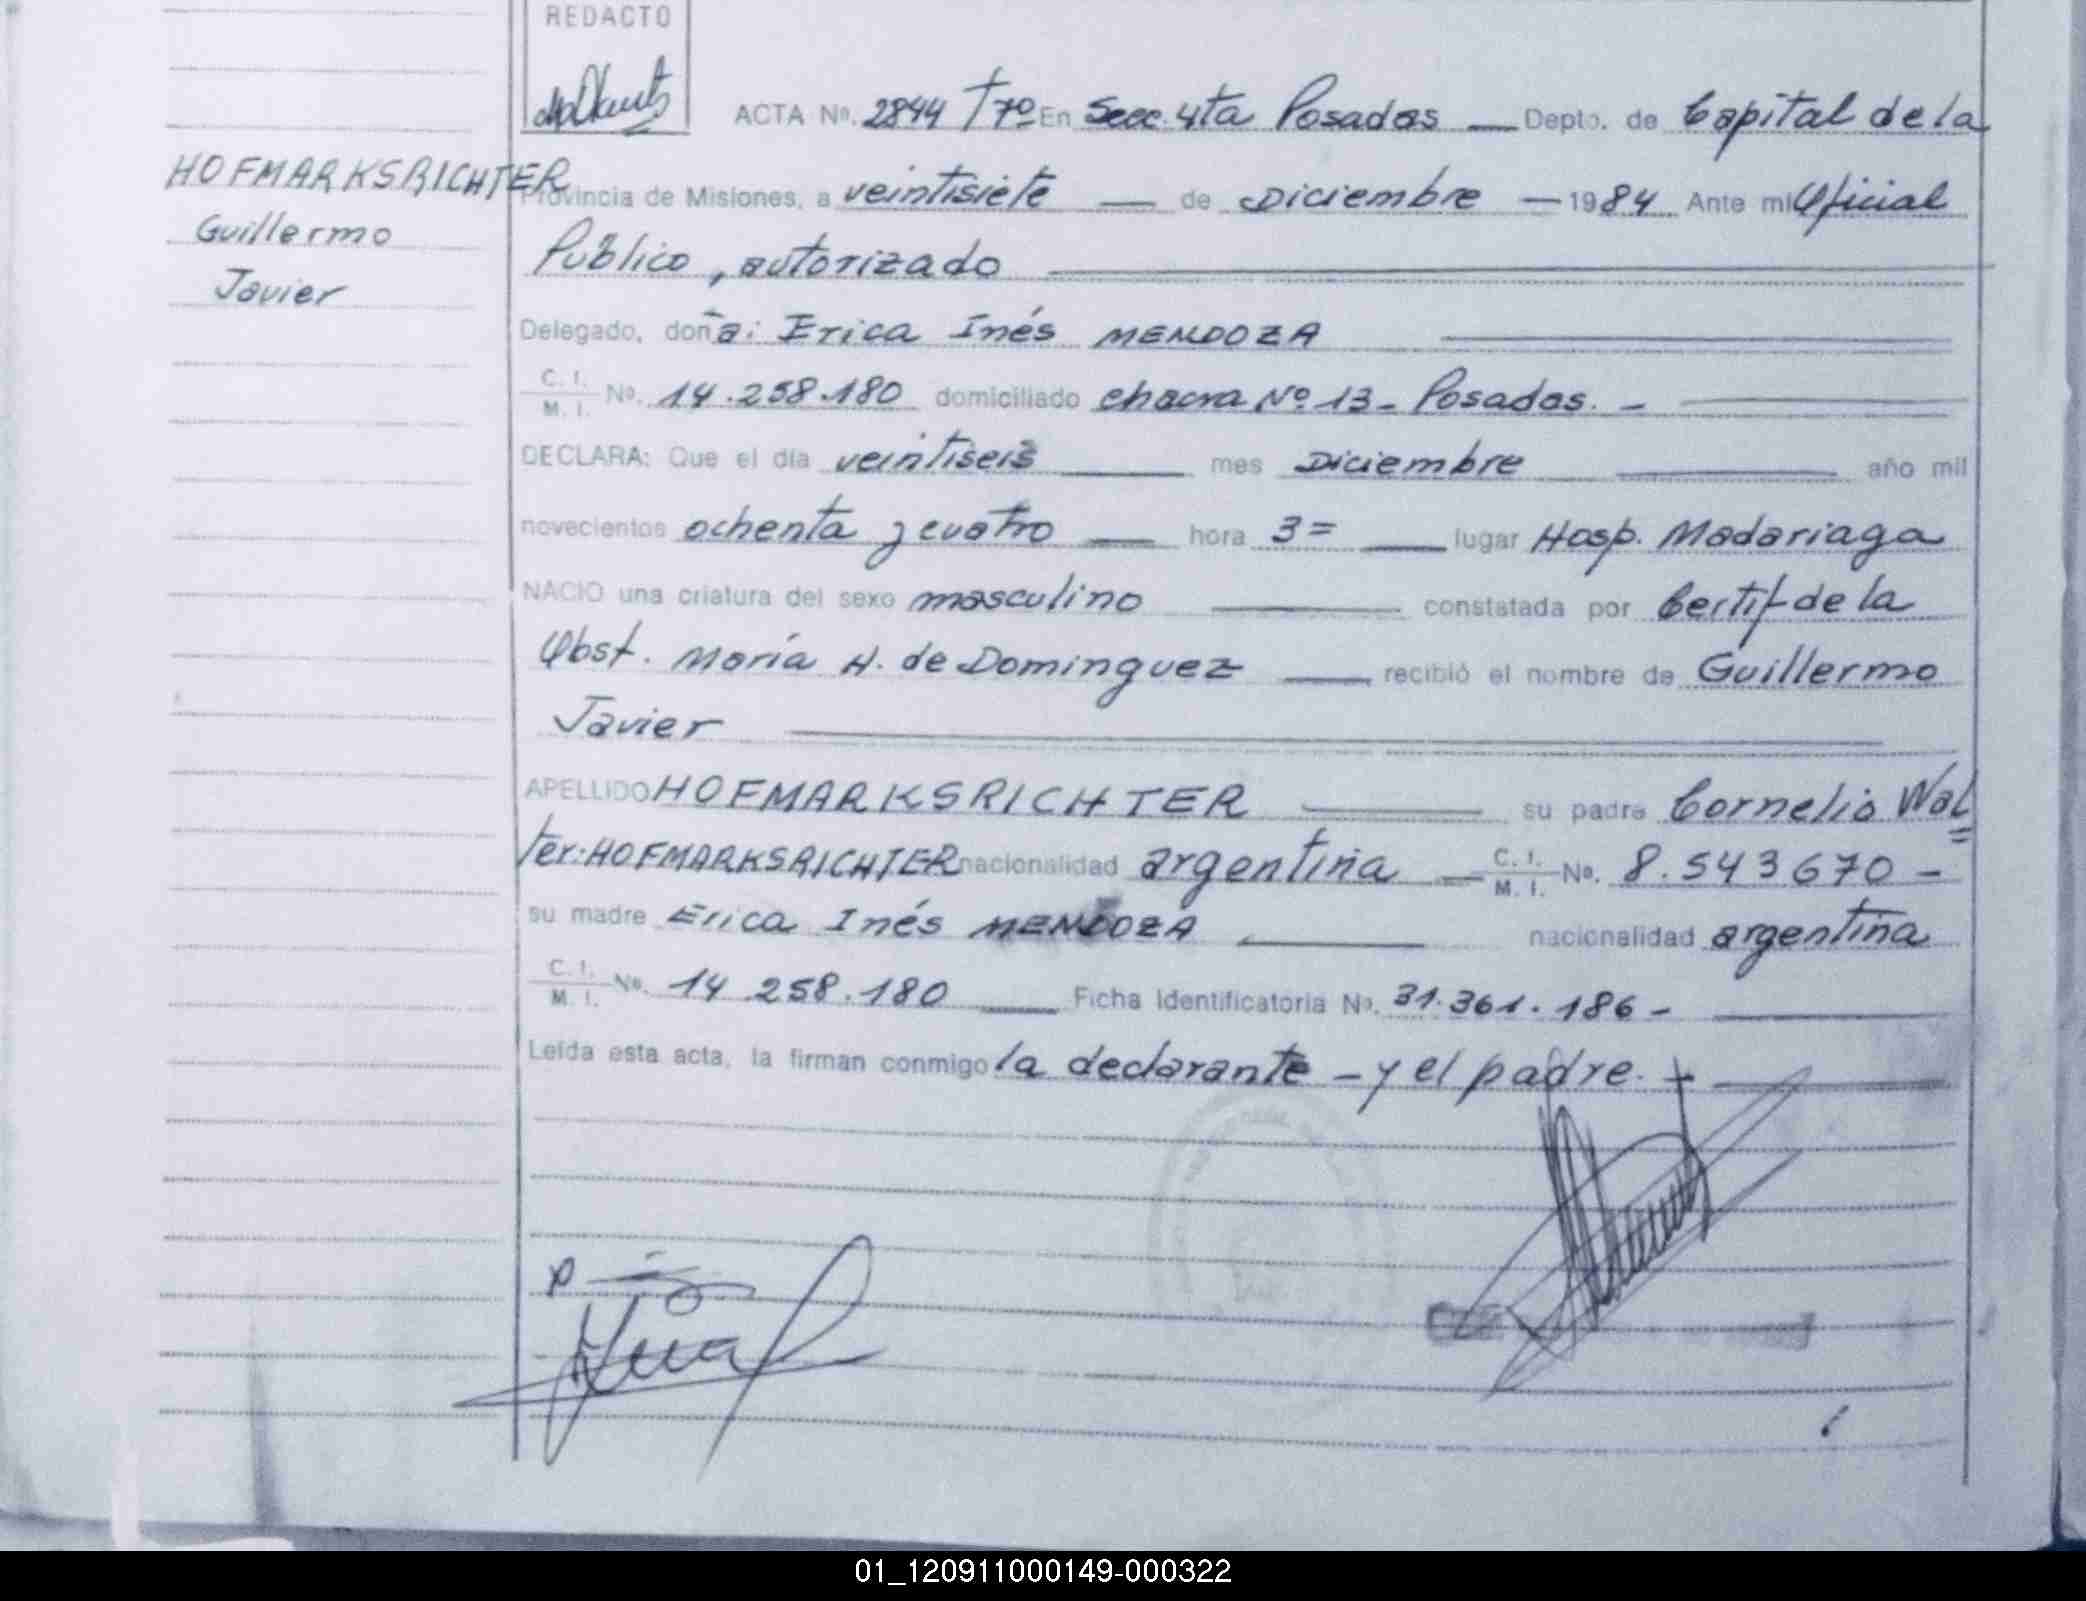 REDACTO
ACTA Nº. 2844 Tº 7º En Secc. 4ta Posadas — Depto. de Capital de la
HOFMARKSRICHTER
Provincia de Misiones, a veintisiete — de Diciembre — 1984 Ante mi Oficial
Guillermo
Público, autorizado
Javier
Delegado, doña: Erica Inés MENDOZA
C. I. / M. I. Nº. 14.258.180 domiciliado chacra Nº 13 - Posadas. -
DECLARA: Que el día veintiseis mes Diciembre año mil
novecientos ochenta y cuatro — hora 3= — lugar Hosp. Madariaga
NACIO una criatura del sexo masculino — constatada por Certif de la
Obst. María H. de Dominguez — recibió el nombre de Guillermo
Javier
APELLIDO HOFMARKSRICHTER — su padre Cornelio Wal=
ter: HOFMARKSRICHTER nacionalidad argentina — C. I. / M. I. Nº. 8.543670 -
su madre Erica Inés MENDOZA — nacionalidad argentina
C. I. / M. I. Nº. 14 258.180 — Ficha Identificatoria Nº. 31.361.186 -
Leída esta acta, la firman conmigo la declarante - y el padre. +
01_120911000149-000322